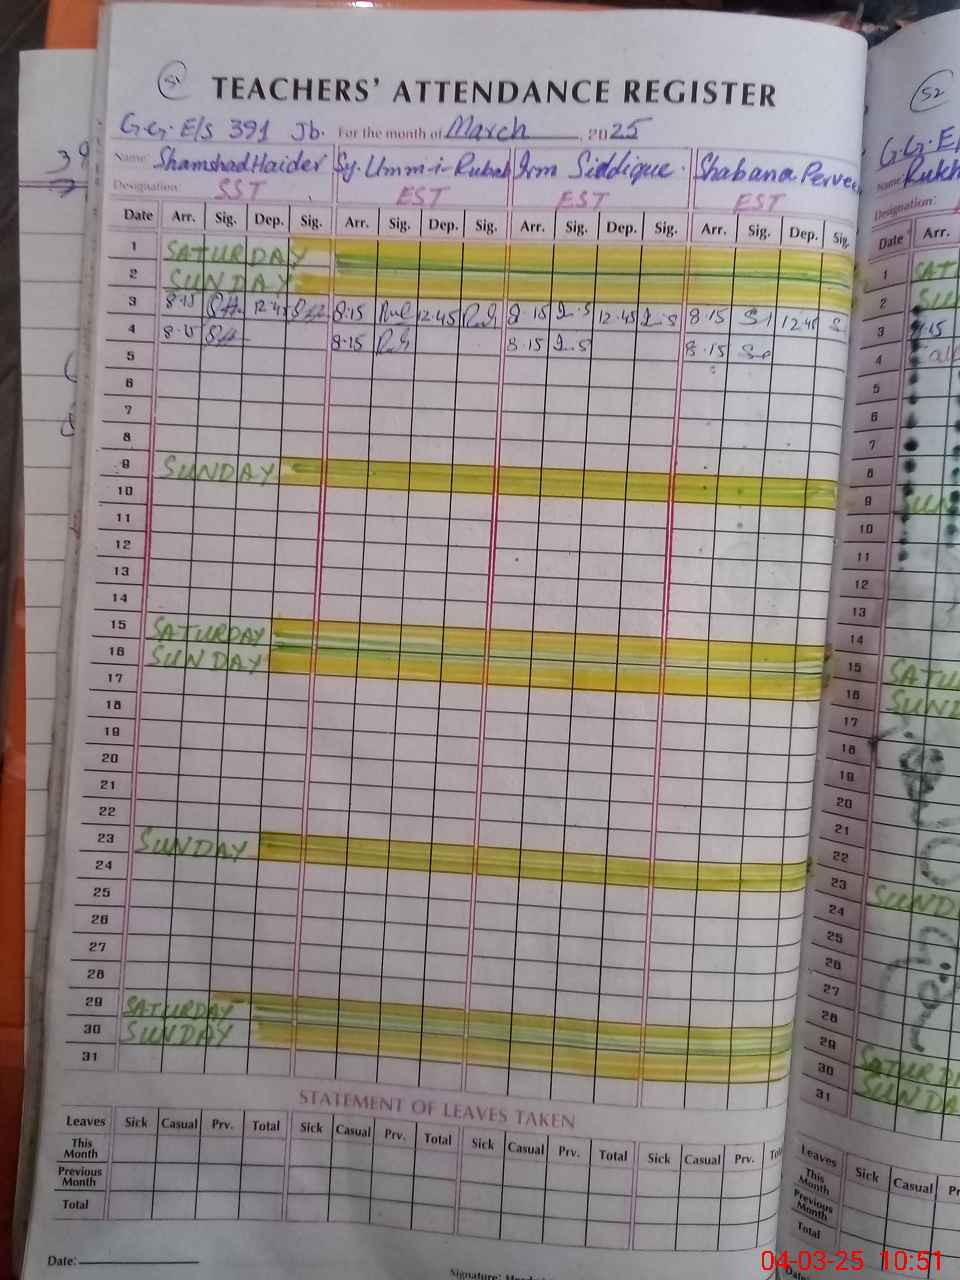 51
TEACHERS' ATTENDANCE REGISTER
G.G. E/S 391 Jb. For the month of March, 2025
Name: Shamshad Haider Sy. Umm-i-Rubab Irm Siddique. Shabana Parvee
Designation: SST EST EST EST
Date Arr. Sig. Dep. Sig. Arr. Sig. Dep. Sig. Arr. Sig. Dep. Sig. Arr. Sig. Dep. Sig.
1 SATURDAY
2 SUNDAY
3 8·15 12·45 8·15 12.45 8·15 12·45 8·15 12·45
4 8·15 8·15 8·15 8·15
5
6
7
8
9 SUNDAY
10
11
12
13
14
15 SATURDAY
16 SUNDAY
17
18
19
20
21
22
23 SUNDAY
24
25
26
27
28
29 SATURDAY
30 SUNDAY
31
STATEMENT OF LEAVES TAKEN
Leaves Sick Casual Prv. Total Sick Casual Prv. Total Sick Casual Prv. Total Sick Casual Prv.
This Month
Previous Month
Total
Date:
Signature:
52
G.G. E
Name: Rukh
Designation:
Date Arr.
1 SAT
2 SU
3 8.15
4
5
6
7
8
9 SUN
10
11
12
13
14
15 SATU
16 SUND
17
18
19
20
21
22
23 SUND
24
25
26
27
28
29
30 SATURD
31 SUNDA
Leaves Sick Casual Pr
This Month
Previous Month
Total
04-03-25 10:51